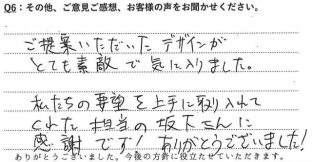 Q6：その他、ご意見ご感想、お客様の声をお聞かせください。
ご提案いただいた デザインが
とても素敵で 気に入りました。
私たちの要望を上手に取り入れて
くれた 担当の 坂下さんに
感謝です! ありがとうございました!
ありがとうございました。今後の方針に役立たせていただきます。